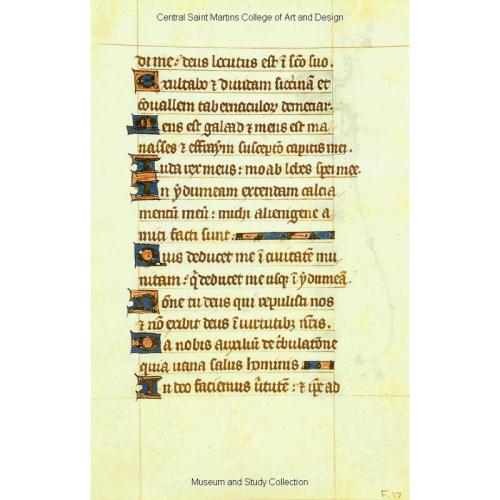 Central Saint Martins College of Art and Design
di me: deus locutus est ĩ sc̃o suo.
Exultabo ⁊ diuidam siccimã et
cõuallem tabernaculoꝝ demetiar.
Meus est galaad ⁊ meus est ma
nasses ⁊ effraym susceptō capitis mei.
Iuda rex meus: moab lebes spei mee.
In ydumeam extendam calcia
mentũ meũ: michi alienigene a
mici facti sunt.
Quis deducet me ĩ ciuitatẽ mu
nitam: q̃ deducet me usqꝫ ĩ ydumeã.
Nõne tu deus qui repulisti nos
⁊ nõ exibit deus ĩ uirtutibꝫ nr̃is.
Da nobis auxiliũ de tⁱbulatõne
quia uana salus hominis
In deo faciemus uⁱtutẽ: ⁊ ip̃e ad
Museum and Study Collection
F.17